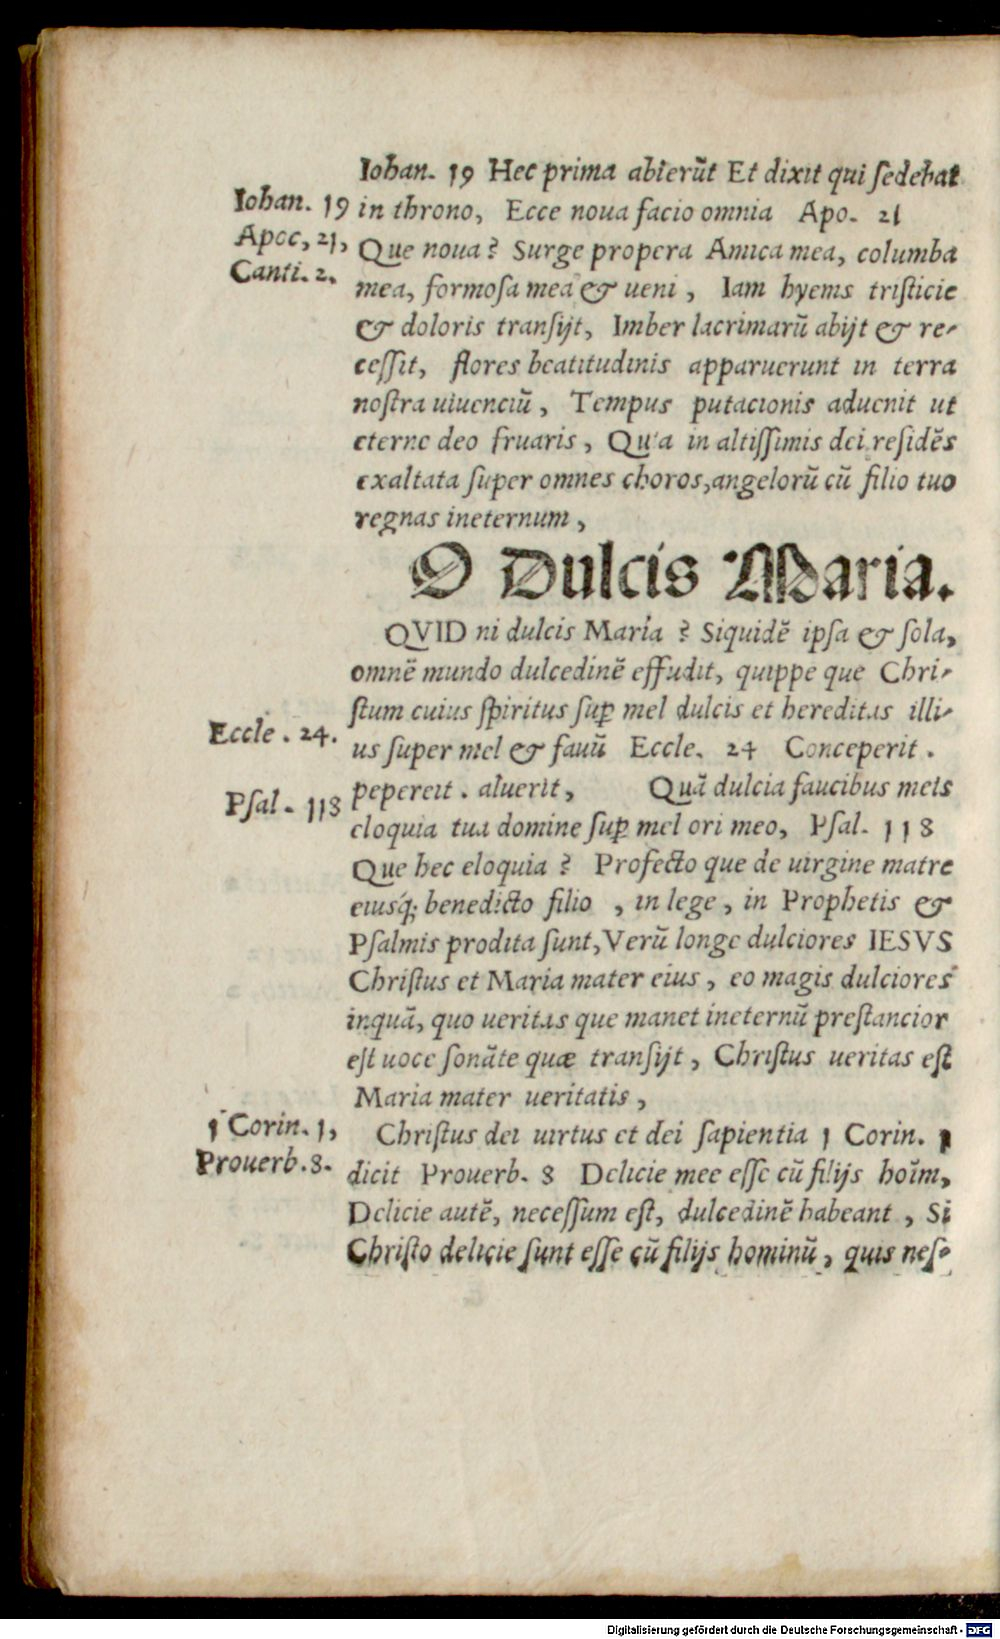 Iohan. 19 Hec prima abierũt Et dixit qui sedebat
Iohan. 19
in throno, Ecce noua facio omnia Apo. 21
Apoc, 21,
Que noua? Surge propera Amica mea, columba
Canti. 2.
mea, formosa mea & ueni, Iam hyems tristicie
& doloris transijt, Imber lacrimarũ abijt & re-
cessit, flores beatitudinis apparuerunt in terra
nostra uiuenciũ, Tempus putacionis aduenit ut
eterne deo fruaris, Quia in altissimis dei residẽs
exaltata super omnes choros, angelorũ cũ filio tuo
regnas ineternum,
O Dulcis Maria.
QVID ni dulcis Maria? Siquidẽ ipsa & sola,
omnẽ mundo dulcedinẽ effudit, quippe que Chri-
stum cuius spiritus suꝑ mel dulcis et hereditas illi-
Eccle. 24.
us super mel & fauũ Eccle. 24 Conceperit.
pepereit. aluerit, Quã dulcia faucibus meis
Psal. 118
eloquia tua domine suꝑ mel ori meo, Psal. 118
Que hec eloquia? Profecto que de uirgine matre
eiusq́; benedicto filio, in lege, in Prophetis &
Psalmis prodita sunt, Verũ longe dulciores IESVS
Christus et Maria mater eius, eo magis dulciores
inquã, quo ueritas que manet ineternũ prestancior
est uoce sonãte quæ transijt, Christus ueritas est
Maria mater ueritatis,
1 Corin. 1,
Christus dei uirtus et dei sapientia 1 Corin. 1
Prouerb. 8.
dicit Prouerb. 8 Delicie mee esse cũ filijs hoĩm,
Delicie autẽ, necessum est, dulcedinẽ habeant, Si
Christo delicie sunt esse cũ filijs hominũ, quis nes-
Digitalisierung gefördert durch die Deutsche Forschungsgemeinschaft - DFG